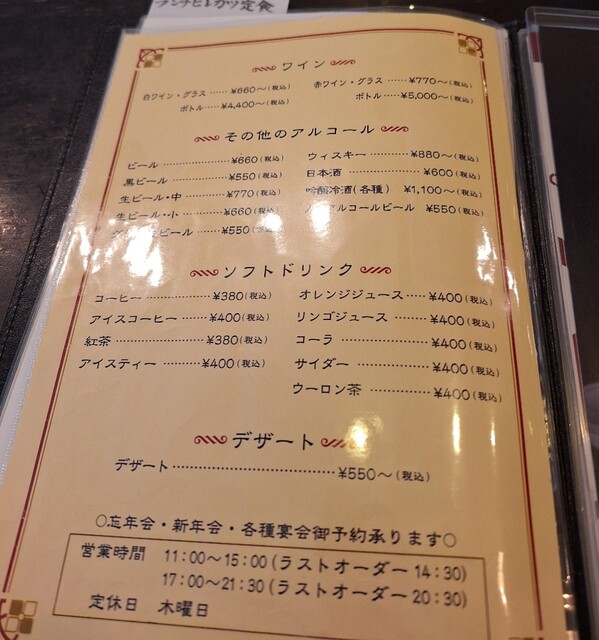 ランチヒレカツ定食
ワイン
白ワイン・グラス ‥‥ ¥660～(税込)
ボトル‥‥¥4,400～(税込)
赤ワイン・グラス ‥‥‥¥770～(税込)
ボトル‥‥¥5,000～(税込)
その他のアルコール
ビール ‥‥‥‥‥‥ ¥660(税込)
黒ビール ‥‥‥‥‥ ¥550(税込)
生ビール・中 ‥‥‥‥ ¥770(税込)
生ビール・小 ‥‥‥‥ ¥660(税込)
ビール ‥‥ ¥550(税込)
ウィスキー ‥‥‥‥¥880～(税込)
日本酒 ‥‥‥‥‥‥ ¥600(税込)
吟醸冷酒(各種) ¥1,100～(税込)
ノンアルコールビール ¥550(税込)
ソフトドリンク
コーヒー ‥‥‥‥‥ ¥380(税込)
アイスコーヒー ‥‥‥ ¥400(税込)
紅茶 ‥‥‥‥‥‥‥ ¥380(税込)
アイスティー ‥‥‥‥ ¥400(税込)
オレンジジュース‥‥ ¥400(税込)
リンゴジュース ‥‥‥ ¥400(税込)
コーラ ‥‥‥‥‥‥ ¥400(税込)
サイダー ‥‥‥‥‥ ¥400(税込)
ウーロン茶 ‥‥‥‥ ¥400(税込)
デザート
デザート‥‥‥‥‥‥‥‥‥‥‥‥¥550～(税込)
○忘年会・新年会・各種宴会御予約承ります○
営業時間 11:00～15:00(ラストオーダー14:30)
17:00～21:30(ラストオーダー20:30)
定休日 木曜日